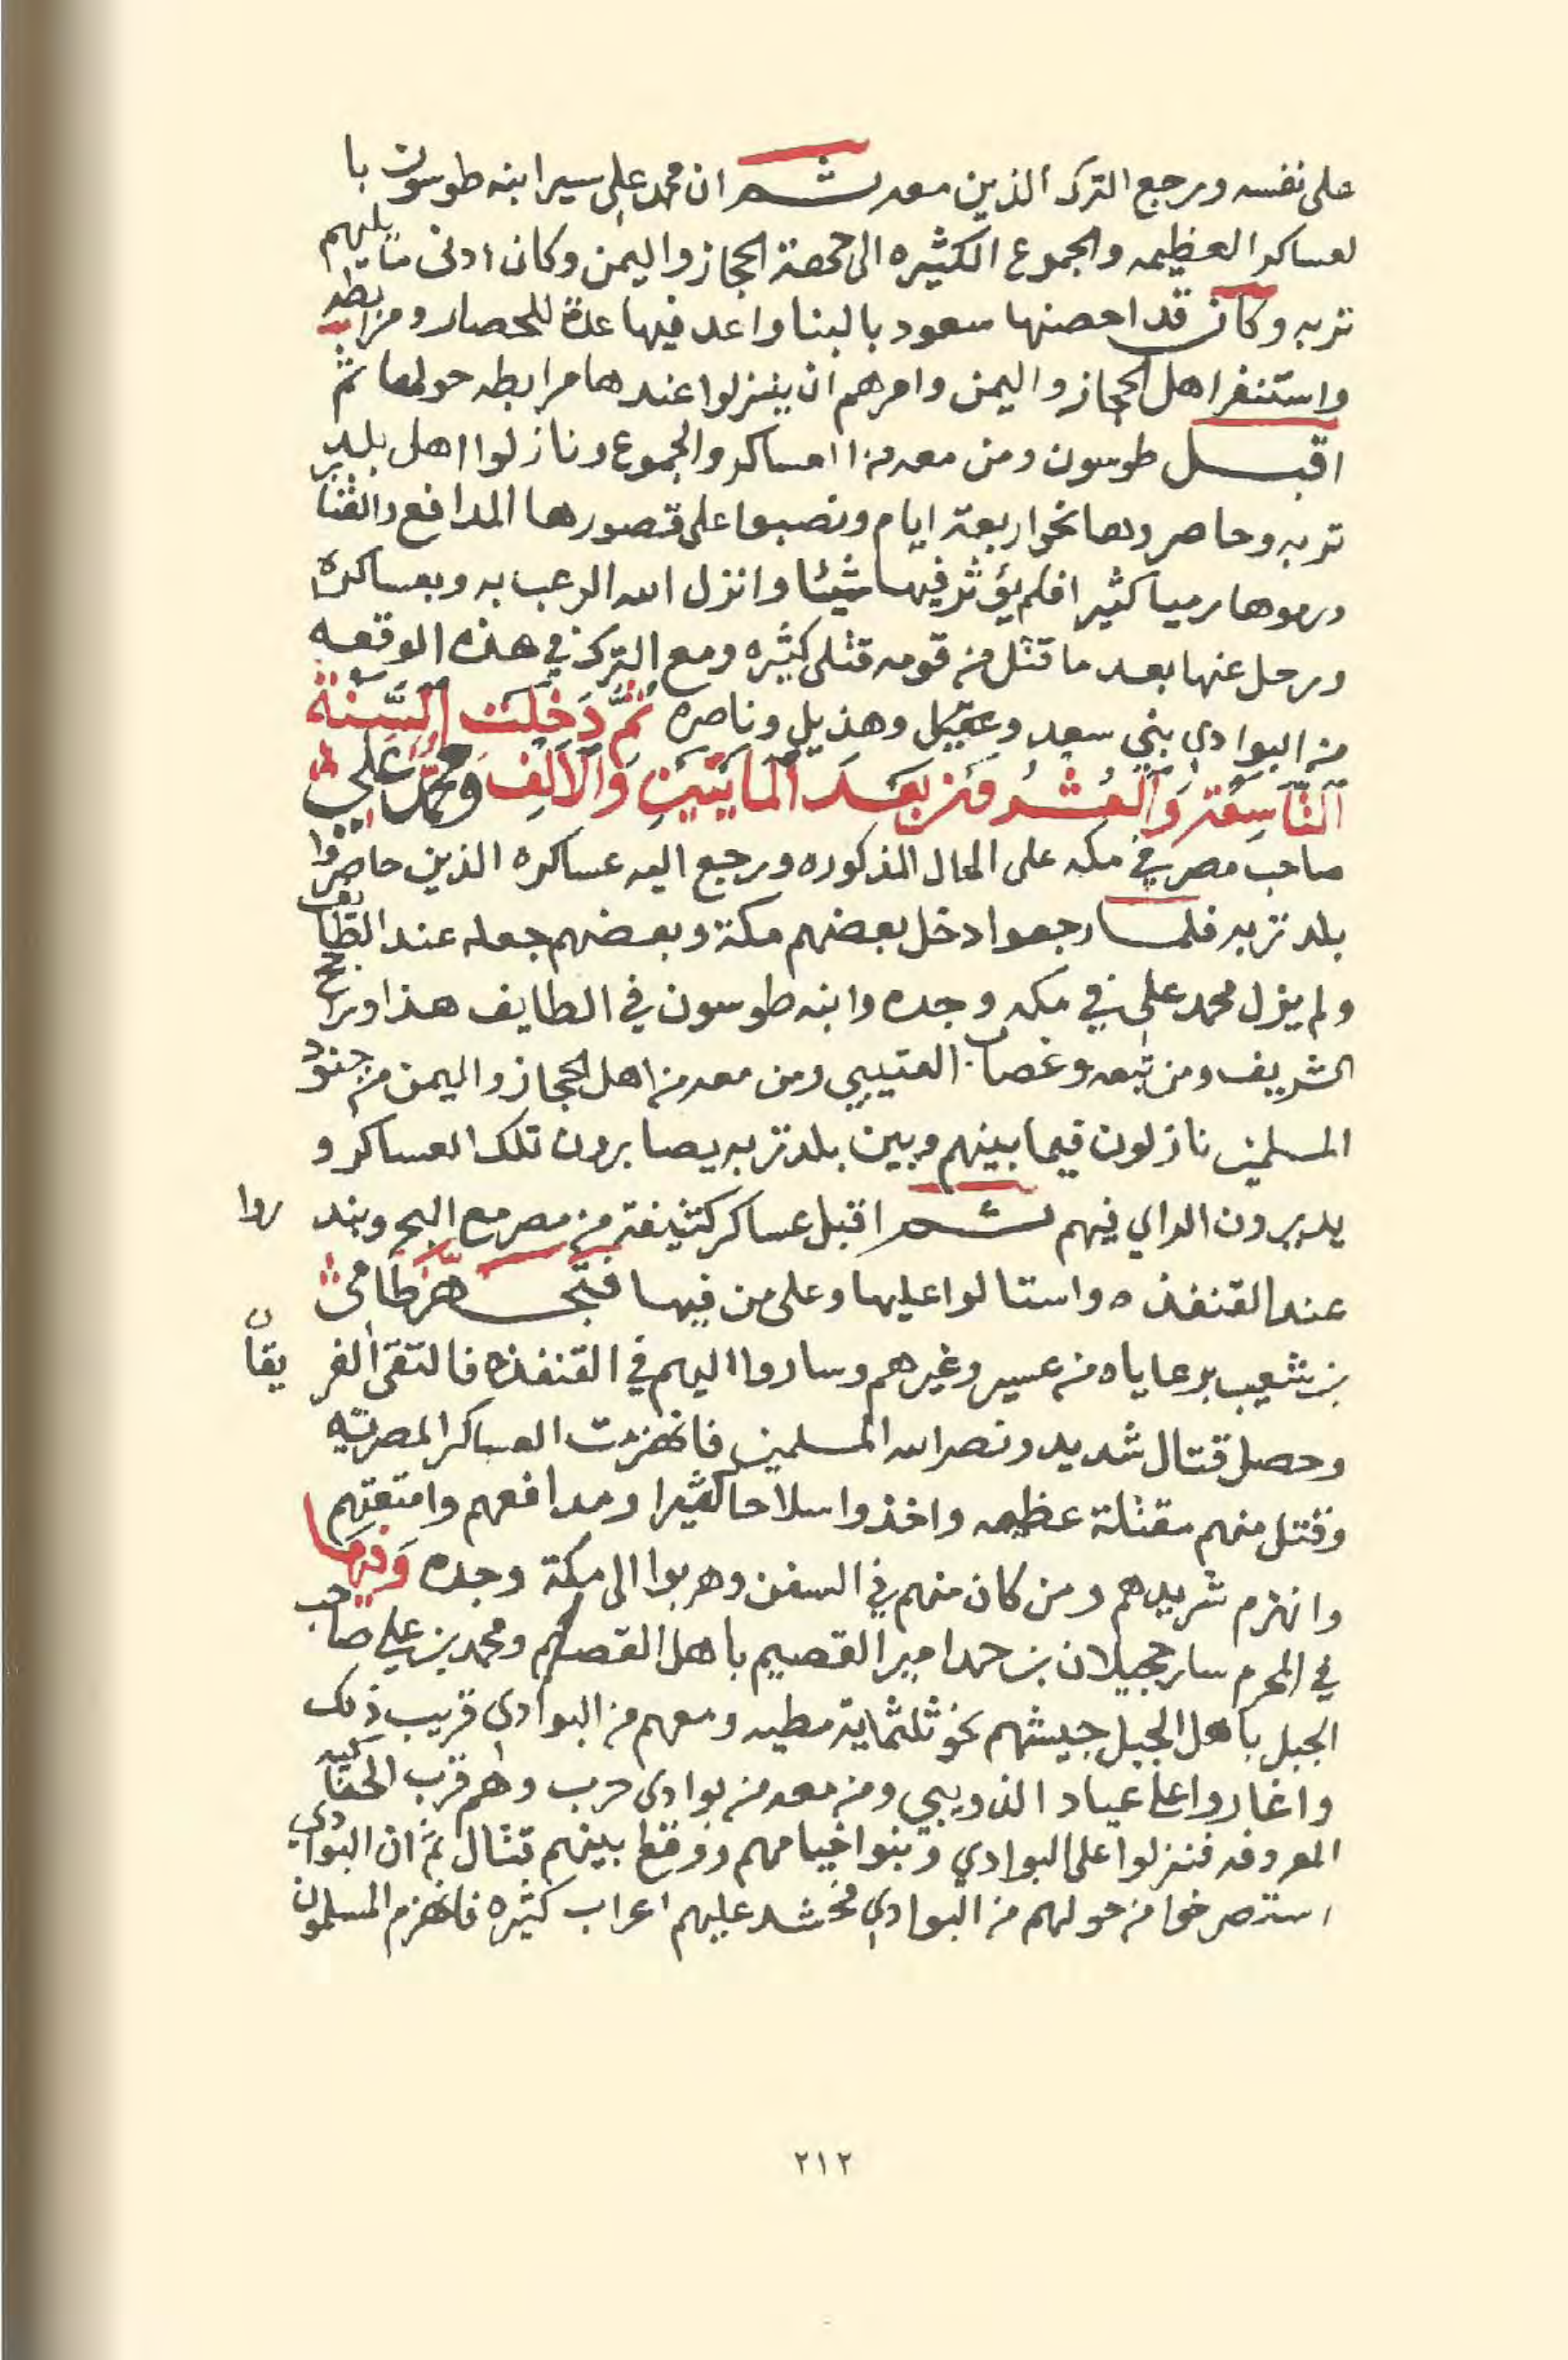 على نفسه ورجع الترك الذين معه ثم ان محمد علي سير ابنه طوسون با
لعساكر العظيمه والجموع الكثيره الى جهة الحجاز واليمن وكان ادنى ما يليهم
تربه وكان قد احصنها سعود بالبنا واعد فيها عدة للحصار ومرابطه
واستنفر اهل الحجاز واليمن وامرهم ان ينزلوا عندها مرابطه حولها ثم
اقبل طوسون ومن معه من العساكر والجموع ونازلوا اهل بلد
تربه وحاصروها نحو اربعة ايام ونصبوا على قصورها المدافع والقنا
ورموها رميا كثيرا فلم يؤثر فيها شيئا وانزل الله الرعب به وبعساكره
ورحل عنها بعد ما قتل من قومه قتلى كثيره ومع الترك في هذه الوقعه
من البوادي بني سعد وعتيبة وهذيل وناصره ثُمَّ دَخَلَت السَّنَة
التَّاسِعَة وَالعُشْرُونَ بَعَدَ المايَتَيْنِ وَالآلِف ومُحَمَّد عَلي
صاحب مصر في مكه على الحال المذكوره ورجع اليه عساكره الذين حاصروا
بلد تربه فلما رجعوا دخل بعضهم مكة وبعضهم جعله عند الطايف
ولم يزل محمد علي في مكه وجده وابنه طوسون في الطايف هذا وراجح
الشريف ومن تبعه وغصاب العتيبي ومن معه من اهل الحجاز واليمن من جنود
المسلمين نازلون فيما بينهم وبين بلد تربه يصابرون تلك العساكر و
يدبرون الراي فيهم ثم اقبل عساكر كثيفة من مصر مع البحر وبندروا
عند القنفذه واستالوا عليها وعلى من فيها فتجهز طامي
بن شعيب برعاياه من عسير وغيرهم وساروا اليهم في القنفذه فالتقى الفريقان
وحصل قتال شديد ونصر الله المسلمين فانهزمت العساكر المصريه
وقتل منهم مقتلة عظيمه واخذوا سلاحا كثيرا ومدافعهم وامتعتهم
وانهزم شريدهم ومن كان منهم في السفن وهربوا الى مكة وجده وَفيها
في المحرم سار حجيلان بن حمد امير القصيم باهل القصيم ومحمد بن علي صاحب
الجبل باهل الجبل جيشهم نحو ثلثماية مطيه ومعهم من البوادي قريب ذلك
واغاروا على عياد الذويبي ومن معه من بوادى حرب وهم قرب الحناكيه
المعروفه فنزلوا على البوادي وبنوا خيامهم ووقع بينهم قتال ثم ان البوادي
استصرخوا من حولهم من البوادي فحشد عليهم اعراب كثيره فانهزم المسلمون
٢١٢